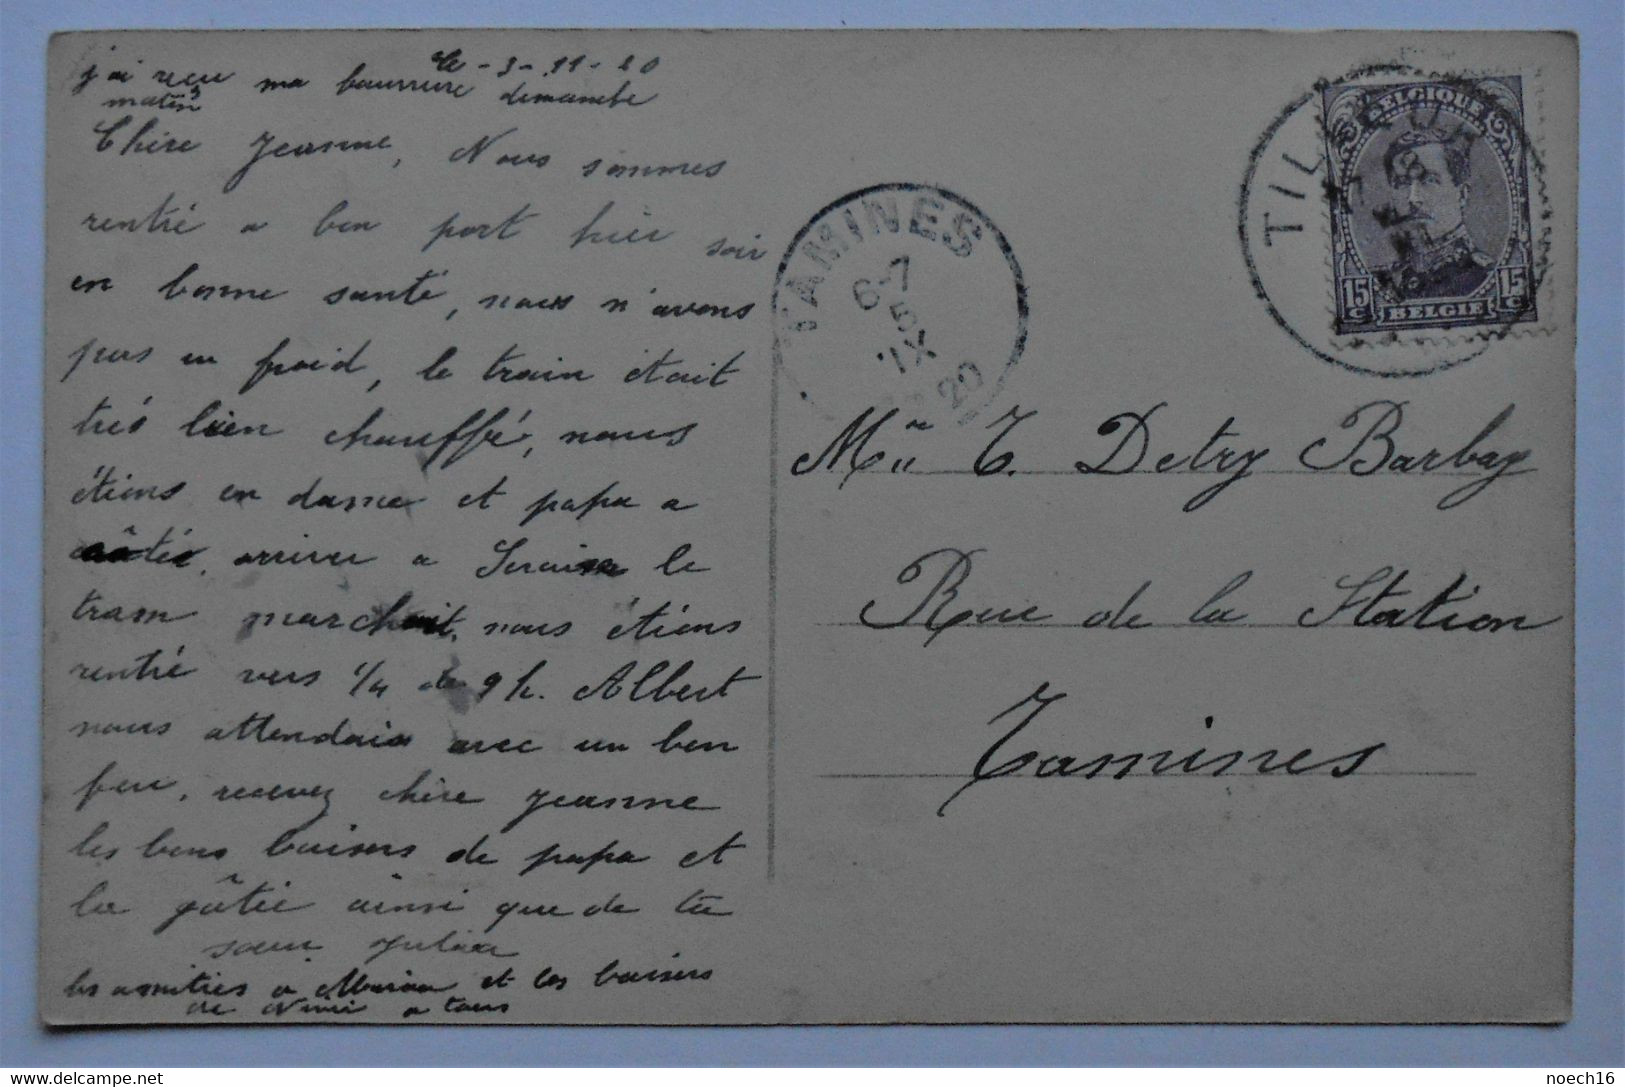 le - 3 - 11 - 20
j'ai reçu ma bourrure dimanche
matin
Chère Jeanne, Nous sommes
rentré a bon port hier soir
en bonne santé, nous n'avons
pas eu froid, le train était
très bien chauffé, nous
étions en dame et papa a
côté, arriver a Seraing le
tram marchait, nous étions
rentré vers 1/4 de 9 h. Albert
nous attendais avec un bon
feu, recevez chère Jeanne
les bons baisers de papa et
la gâtée ainsi que de ta
sœur Julia
les amitiés a Maria et les baisers
de Ninie a tous
TAMINES
6-7
5
IX
20
TIL
BELGIQUE
15 c
15 c
BELGIE
Mlle T. Detry Barbay
Rue de la Station
Tamines
noech16